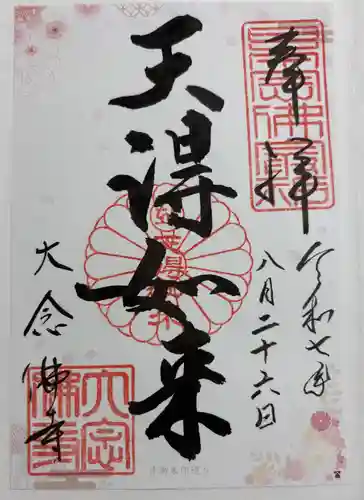 奉拝
令和七年
八月二十六日
天得如来
大念佛寺